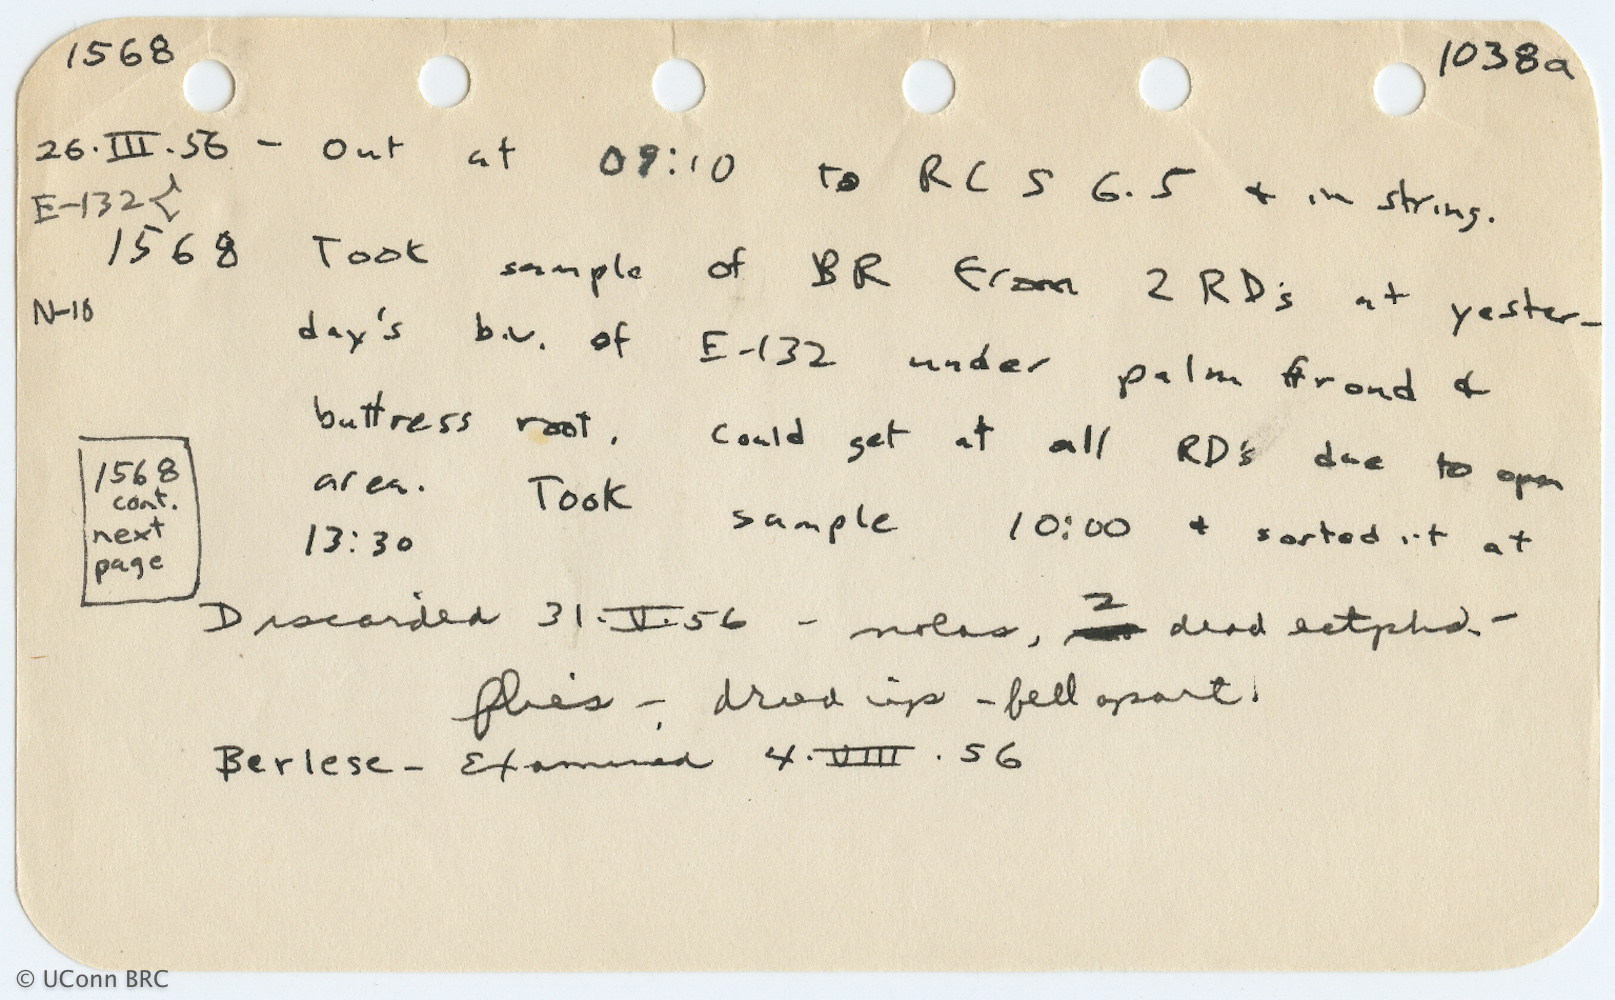 1568 1038a
26.III.56 - Out at 09:10 to RC S 6.5 + in string.
E-132
1568 Took sample of BR from 2 RD's at yester-
N-18 day's b.v. of E-132 under palm frond &
buttress root. Could get at all RD's due to open
area. Took sample 10:00 + sorted it at
13:30
1568
cont.
next
page
Discarded 31.V.56 - notes, 2 dead
flies - dried up - fell apart.
Berlese - Examined 4.VIII.56
© UConn BRC